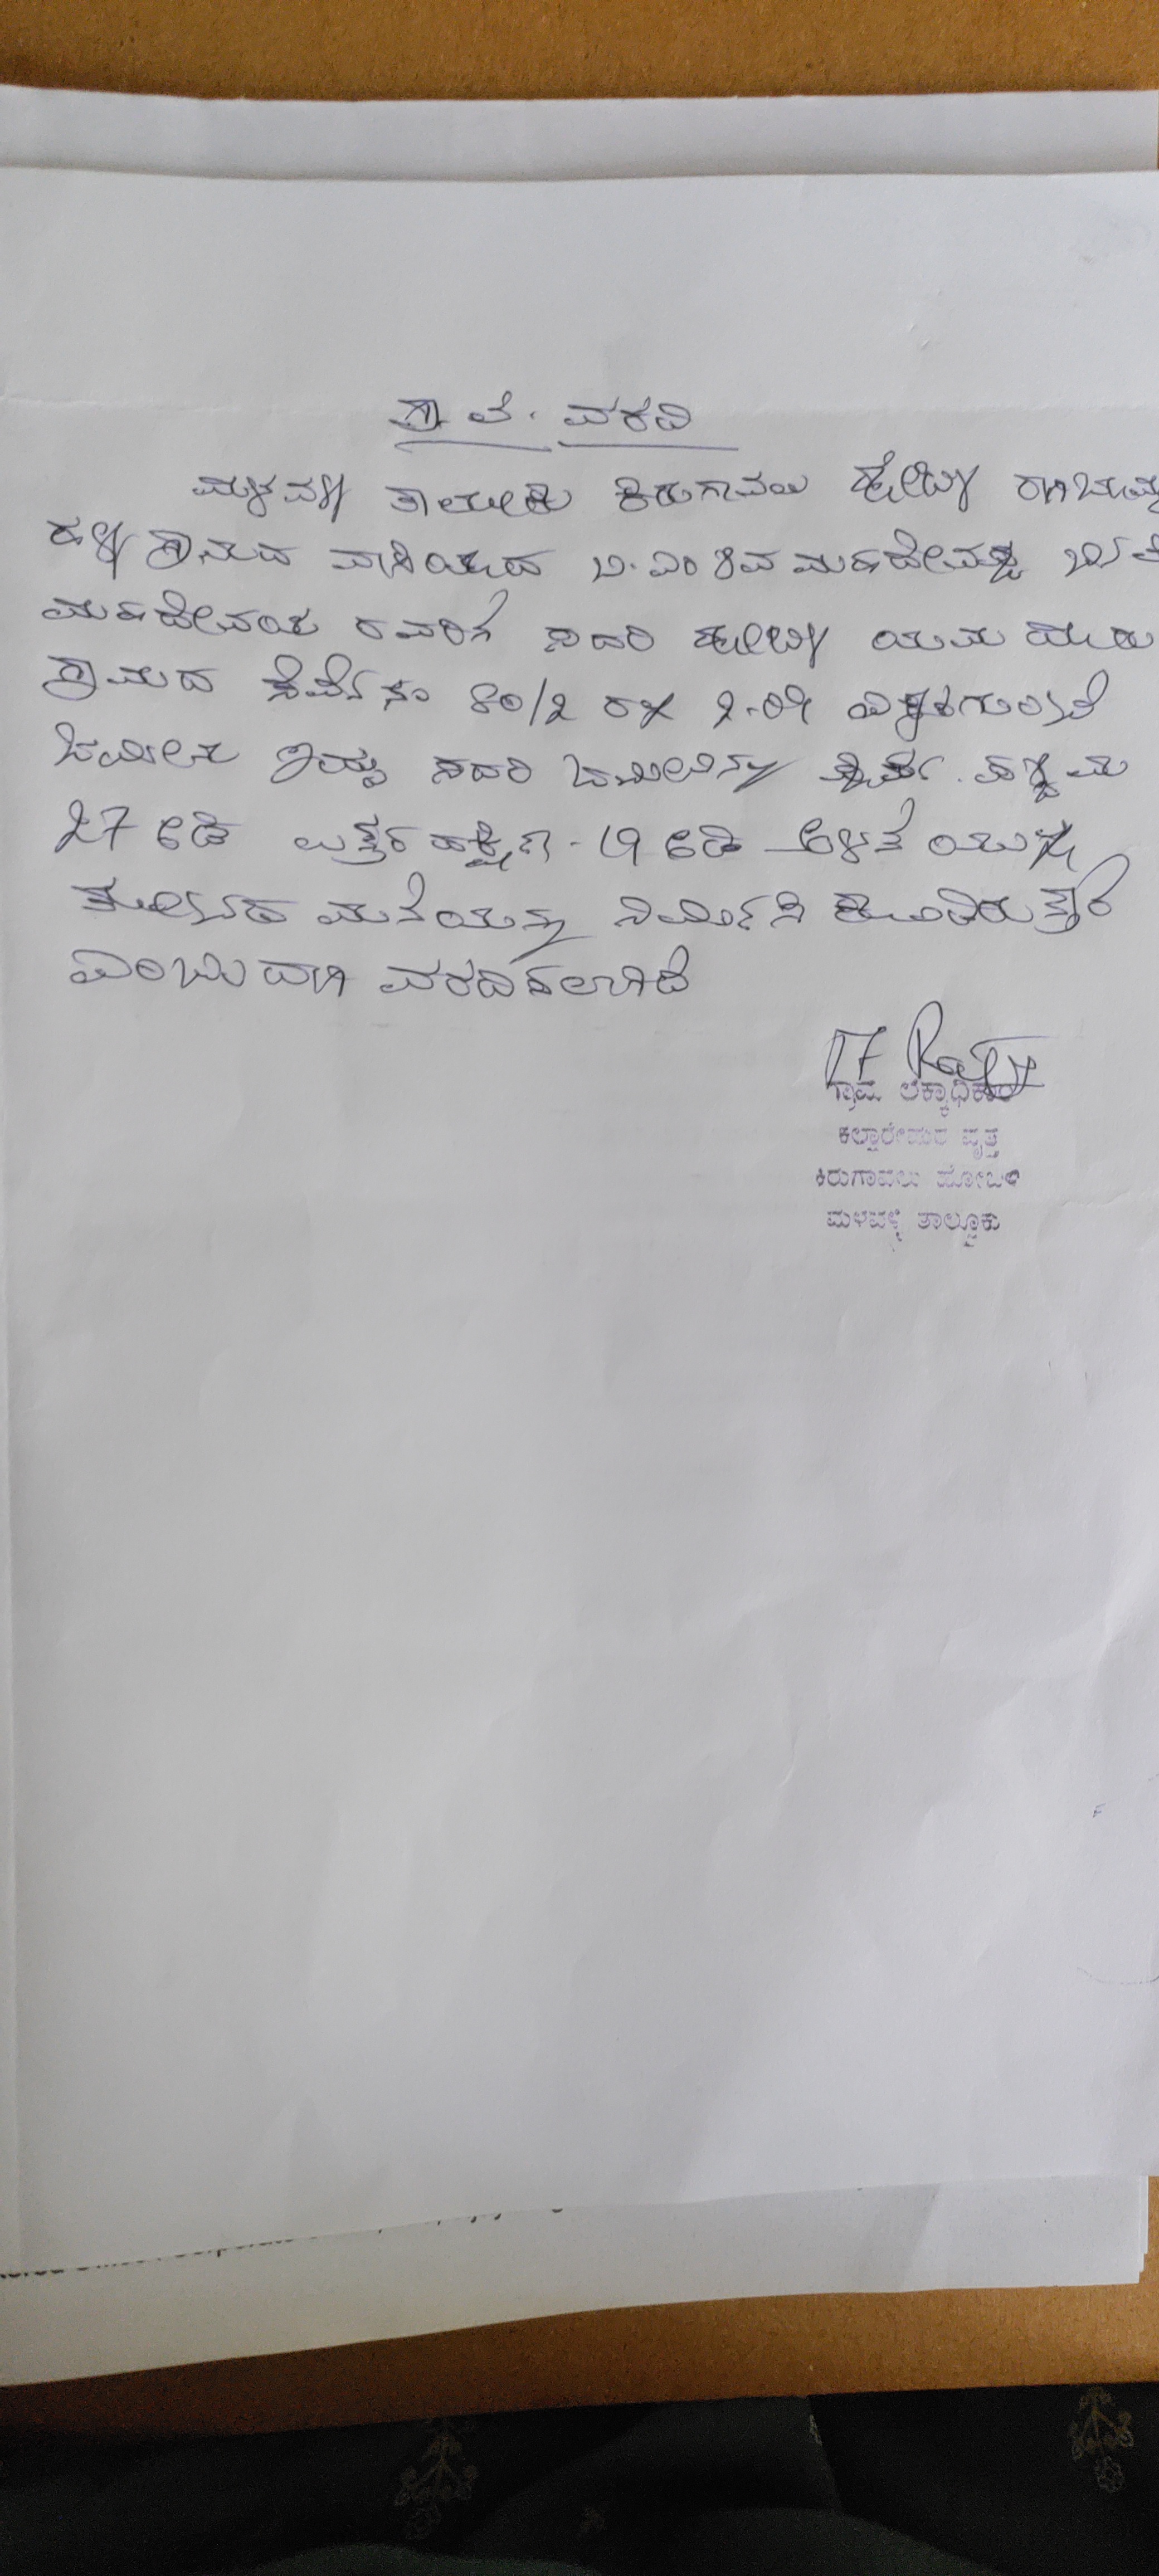 ಗ್ರಾ ಲೆ. ವರದಿ
ಮಳವಳ್ಳಿ ತಾಲೂಕು ಕಿರುಗಾವಲು ಹೋಬಳಿ
ಹಳ್ಳಿ ಗ್ರಾಮದ ವಾಸಿಯಾದ ಬಿ.ಎಂ ಶಿವಮಹದೇವಪ್ಪ ಬಿನ್
ಮಹದೇವಯ್ಯ ರವರಿಗೆ ಸದರಿ ಹೋಬಳಿ
ಗ್ರಾಮದ ಸರ್ವೆ ನಂ 80/2 ರಲ್ಲಿ 2-09
ಜಮೀನು ಇದ್ದು ಸದರಿ ಜಮೀನಿನಲ್ಲಿ ಪೂರ್ವ. ಪಶ್ಚಿಮ
27 ಅಡಿ ಉತ್ತರ ದಕ್ಷಿಣ - 19 ಅಡಿ ಅಳತೆಯುಳ್ಳ
ಮನೆಯನ್ನು ನಿರ್ಮಿಸಿ ಕೊಂಡಿರುತ್ತಾರೆ
ಎಂಬುದಾಗಿ ವರದಿಸಲಾಗಿದೆ
ಗ್ರಾಮ ಲೆಕ್ಕಾಧಿಕಾರಿ
ವೃತ್ತ
ಕಿರುಗಾವಲು ಹೋಬಳಿ
ಮಳವಳ್ಳಿ ತಾಲ್ಲೂಕು